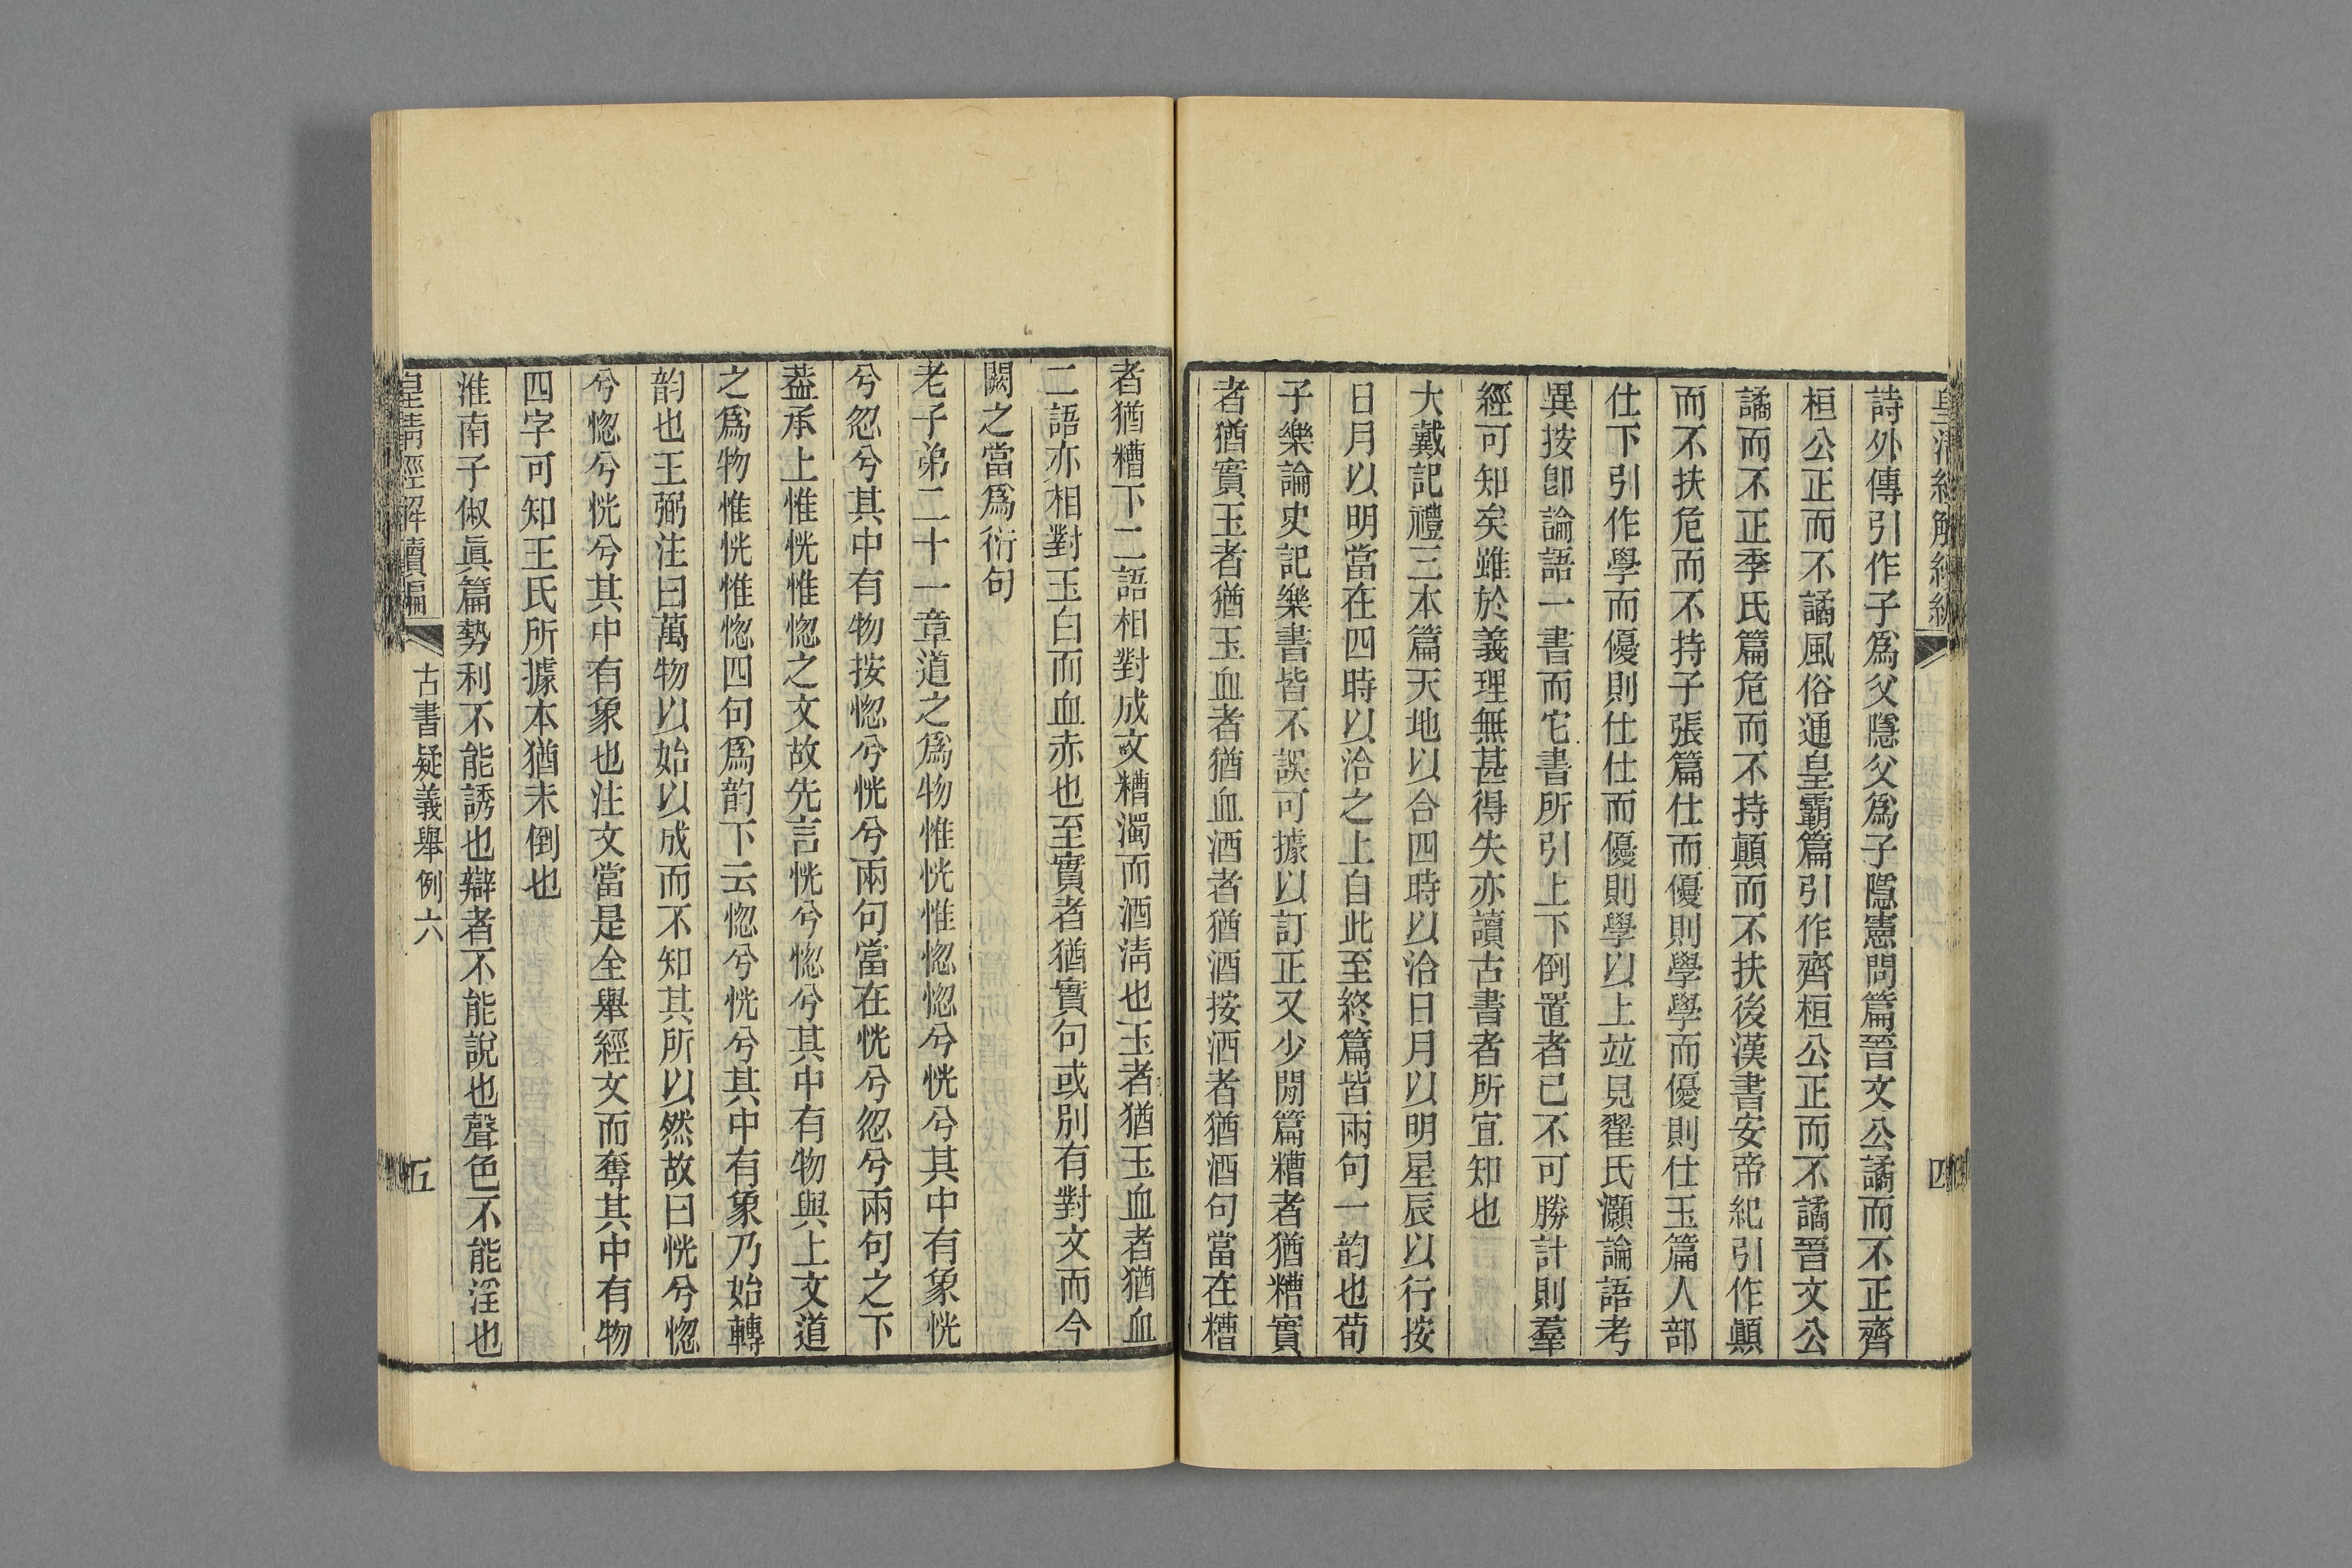 詩外傳引作子爲父隱父爲子隱憲問篇晉文公譎而不正齊
桓公正而不譎風俗通皇霸篇引作齊桓公正而不譎晉文公
譎而不正季氏篇危而不持顛而不扶後漢書安帝紀引作顛
而不扶危而不持子張篇仕而優則學學而優則仕玉篇人部
仕下引作學而優則仕仕而優則學以上竝見翟氏灝論語考
異按卽論語一書而它書所引上下倒置者已不可勝計則羣
經可知矣雖於義理無甚得失亦讀古書者所宜知也
大戴記禮三本篇天地以合四時以洽日月以明星辰以行按
日月以明當在四時以洽之上自此至終篇皆兩句一韵也荀
子樂論史記樂書皆不誤可據以訂正又少閒篇糟者猶糟實
者猶實玉者猶玉血者猶血酒者猶酒按酒者猶酒句當在糟
者猶糟下二語相對成文糟濁而酒淸也玉者猶玉血者猶血
二語亦相對玉白而血赤也至實者猶實句或別有對文而今
闕之當爲衍句
老子弟二十一章道之爲物惟恍惟惚惚兮恍兮其中有象恍
兮忽兮其中有物按惚兮恍兮兩句當在恍兮忽兮兩句之下
葢承上惟恍惟惚之文故先言恍兮惚兮其中有物與上文道
之爲物惟恍惟惚四句爲韵下云惚兮恍兮其中有象乃始轉
韵也王弼注曰萬物以始以成而不知其所以然故曰恍兮惚
兮惚兮恍兮其中有象也注文當是全舉經文而奪其中有物
四字可知王氏所據本猶未倒也
淮南子俶眞篇勢利不能誘也辯者不能說也聲色不能淫也
皇淸經解續編
古書疑義舉例六
五